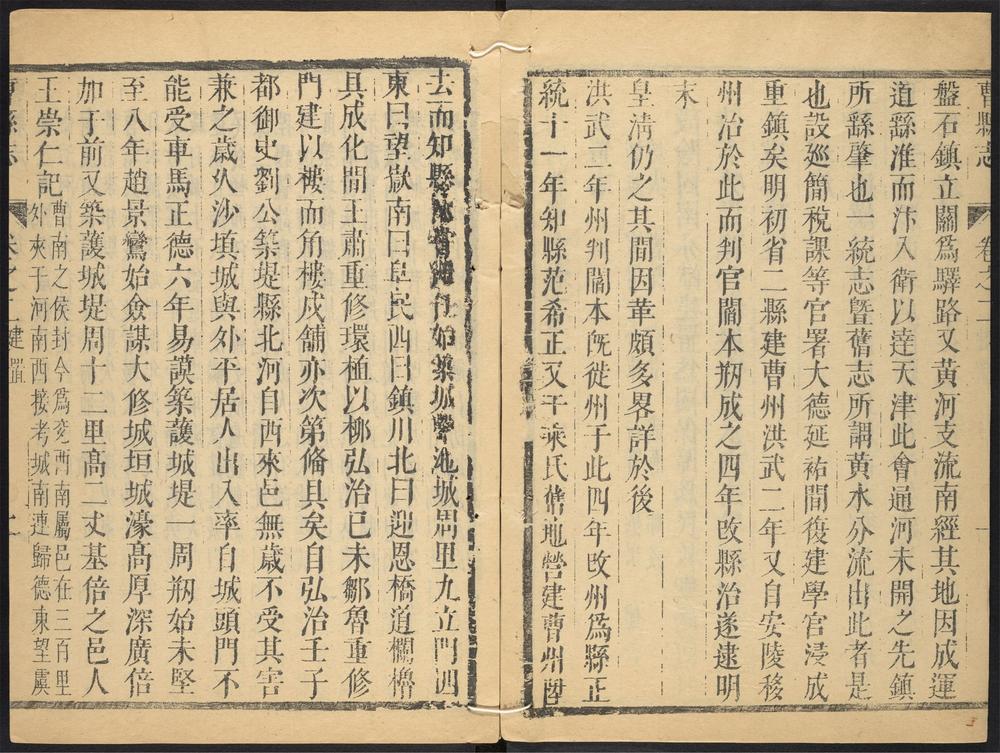 曹縣志 卷之二
盤石鎮立關為驛路又黃河支流南經其地因成運
道繇淮而汴入衛以達天津此會通河未開之先鎮
所繇肇也一統志曁舊志所謂黃水分流出此者是
也設廵簡稅課等官署大德延祐間復建學官浸成
重鎮矣明初省二縣建曹州洪武二年又自安陵移
州治於此而判官闔本剏成之四年改縣治遂逮明
末
皇清仍之其間因革頗多畧詳於後
洪武二年州判闔本旣徙州于此四年改州為縣正
統十一年知縣范希正又于乘氏舊地營建曹州
去而知縣 始築城鑿池城周里九立門四
東曰望嶽南曰阜民西曰鎮川北曰迎恩橋道欄櫓
具成化間王肅重修環植以柳弘治己未鄒魯重修
門建以樓而角樓戍舖亦次第俻具矣自弘治壬子
都御史劉公築堤縣北河自西來邑無歲不受其害
兼之歲久沙填城與外平居人出入率自城頭門不
能受車馬正德六年易謨築護城堤一周剏始未堅
至八年趙景鸞始僉謀大修城垣城濠高厚深廣倍
加于前又築護城堤周十二里高二丈基倍之邑人
王崇仁記曹南之侯封今為兖西南屬邑在三百里
外夾于河南西接考城南連歸德東望虞
縣志 卷之二建置